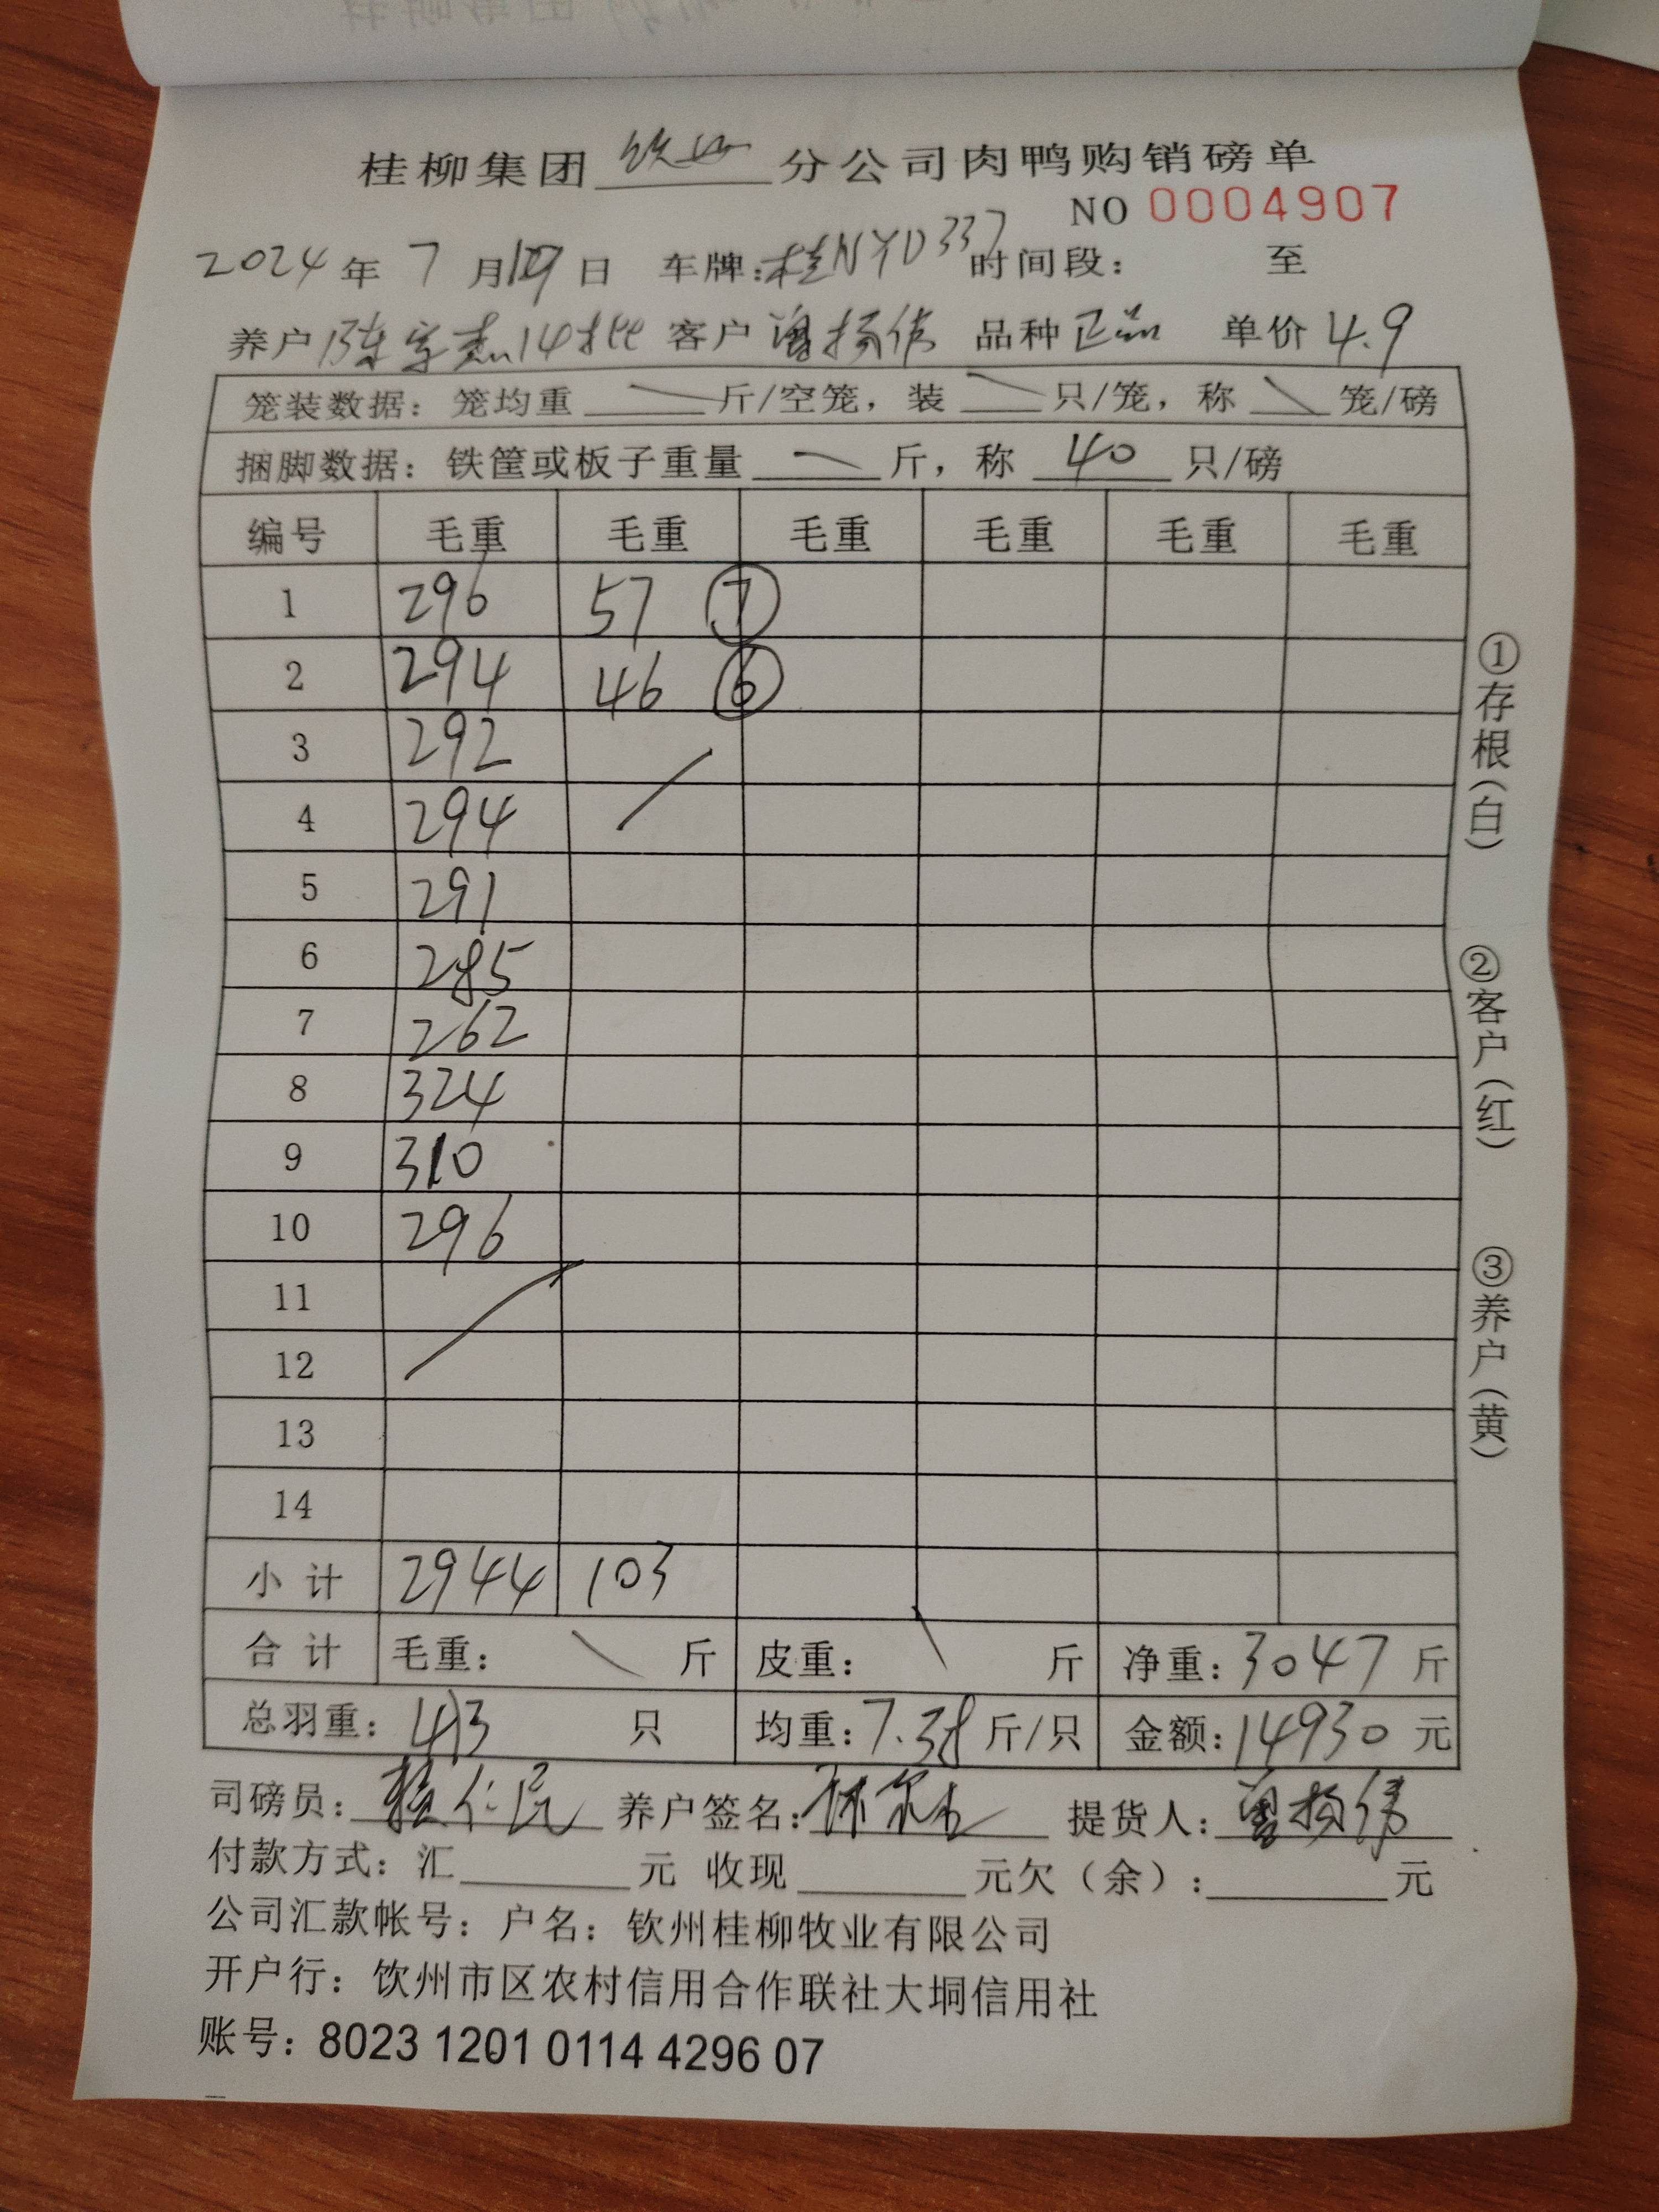 桂柳集团 钦州 分公司肉鸭购销磅单
NO 0004907
2024 年 7 月 19 日 车牌:桂NYD337 时间段: 至
养户 陈字杰14批 客户 曾扬伟 品种 正品 单价 4.9
笼装数据: 笼均重 斤/空笼, 装 只/笼, 称 笼/磅
捆脚数据: 铁筐或板子重量 斤, 称 40 只/磅
编号 毛重 毛重 毛重 毛重 毛重 毛重
1 296 57 ⑦
2 294 46 ⑥
3 292
4 294
5 291
6 285
7 262
8 324
9 310
10 296
11
12
13
14
小计 2944 103
合计 毛重: 斤 皮重: 斤 净重: 3047 斤
总羽重: 413 只 均重: 7.38 斤/只 金额: 14930 元
司磅员: 仁民 养户签名: 提货人: 曾扬伟
付款方式: 汇 元 收现 元欠(余): 元
公司汇款帐号: 户名: 钦州桂柳牧业有限公司
开户行: 饮州市区农村信用合作联社大垌信用社
账号: 8023 1201 0114 4296 07
①存根(白)
②客户(红)
③养户(黄)